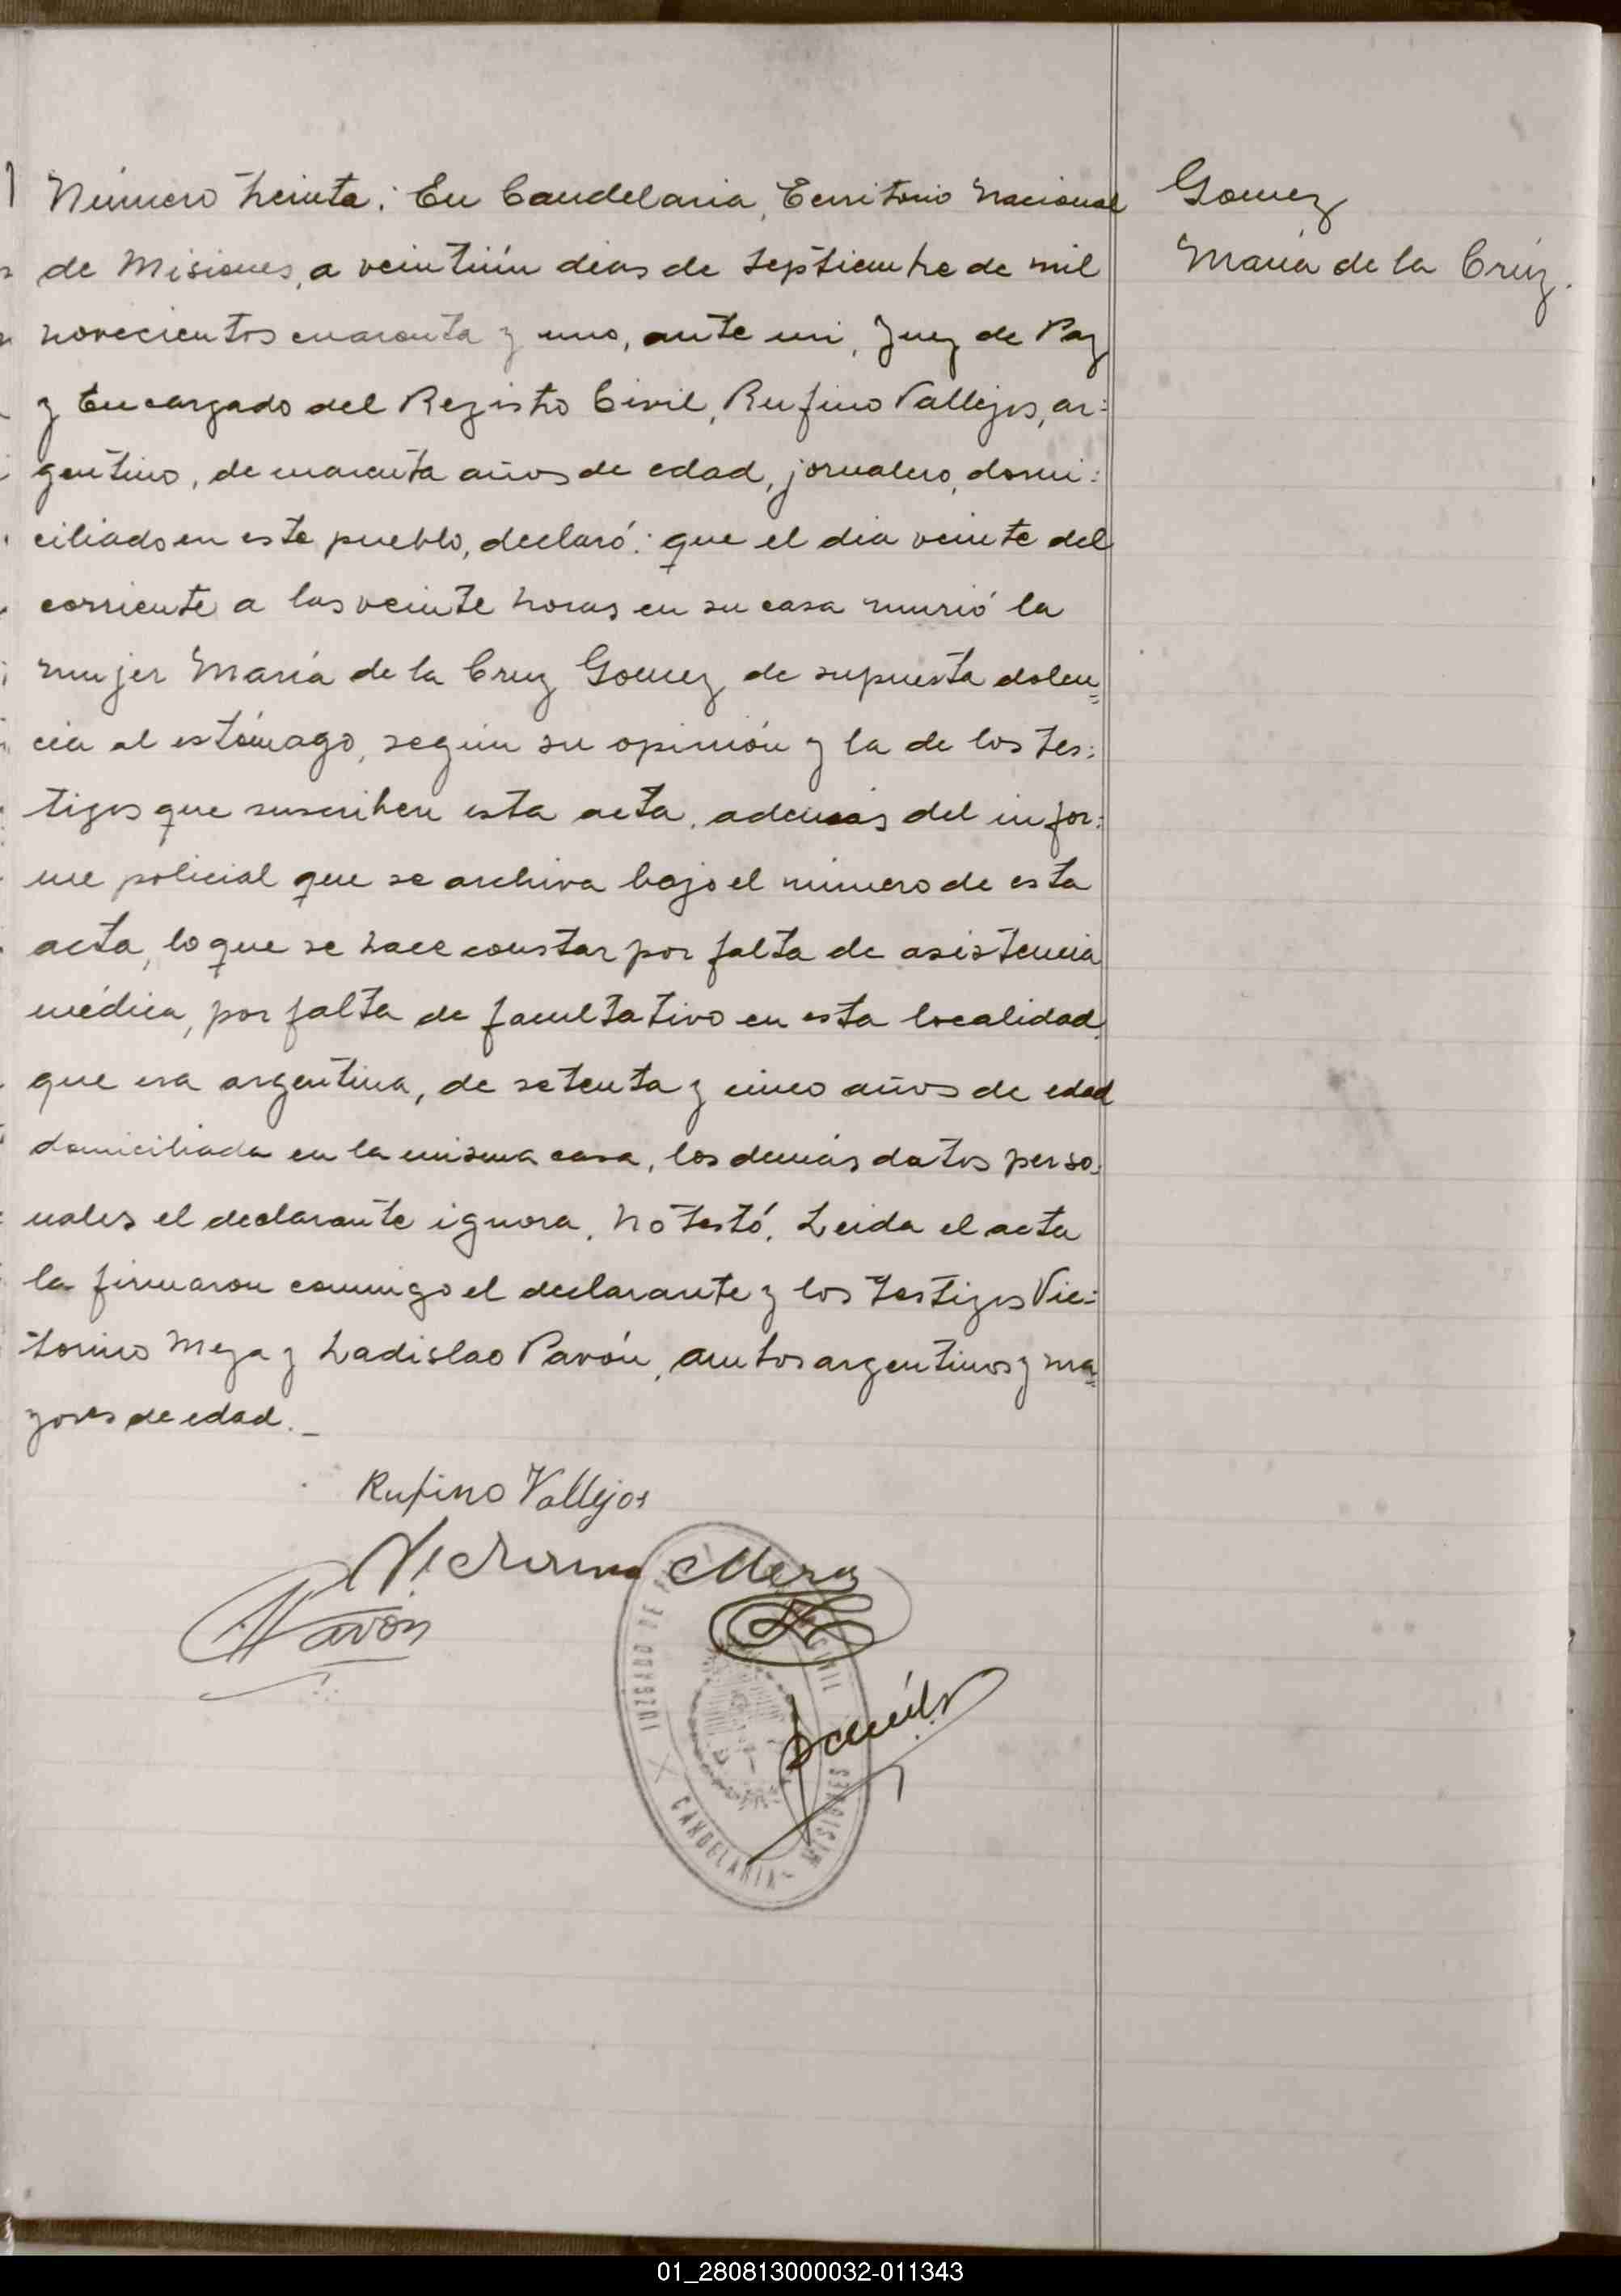 Número treinta: En Candelaria, Territorio Nacional
de Misiones, a veintiún dias de septiembre de mil
novecientos cuarenta y uno, ante mi, Juez de Paz
y Encargado del Registro Civil, Rufino Vallejos, ar:
gentino, de cuarenta años de edad, jornalero, domi:
ciliado en este pueblo, declaró: que el dia veinte del
corriente a las veinte horas en su casa murió la
mujer María de la Cruz Gomez de supuesta dolen=
cia al estómago, según su opinión y la de los tes:
tigos que suscriben esta acta, además del infor:
me policial que se archiva bajo el número de esta
acta, lo que se hace constar por falta de asistencia
médica, por falta de facultativo en esta localidad,
que era argentina, de setenta y cinco años de edad
domiciliada en la misma casa, los demás datos perso:
nales el declarante ignora. No testó. Leida el acta
la firmaron conmigo el declarante y los testigos Vic:
torino Meza y Ladislao Pavón, ambos argentinos y ma=
yores de edad._
Gomez
María de la Crúz.
Rufino Vallejos
Victorino Meza
Pavón
JUZGADO DE PAZ
CIVIL
CANDELARIA - MISIONES
01_280813000032-011343